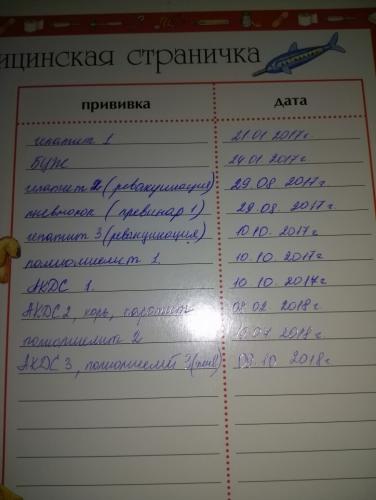 ицинская страничка
прививка дата
гепатит 1 21.01 2017г
БЦЖ 24.01 2017г.
гепатит 2 (ревакцинация) 29 08 2017г
пневмокок (превинар 1) 29.08 2017г.
гепатит 3 (ревакцинация) 10.10. 2017г.
полиомиелит 1. 10.10. 2017г.
АКДС 1. 10.10 2017г.
АКДС 2, корь, паротит 08.02. 2018г.
полиомиелит 2 2018г.
АКДС 3, полиомиелит 3 10 2018г.